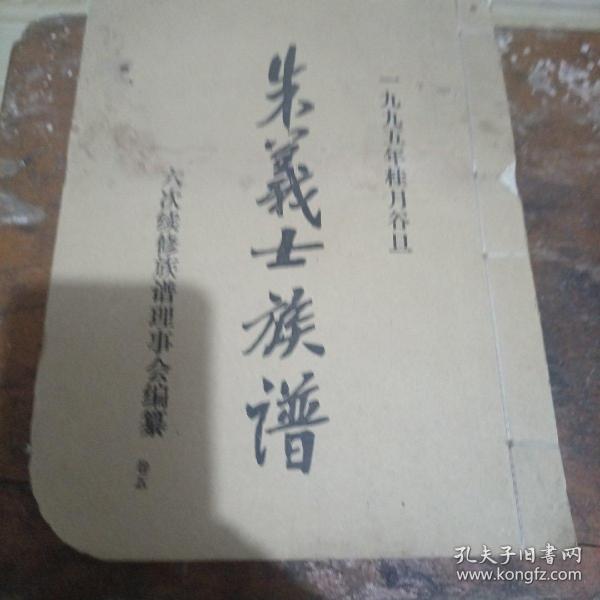 一九九五年桂月谷旦
朱義士族谱
六次续修族谱理事会编纂
卷五
孔夫子旧书网
www.kongfz.com